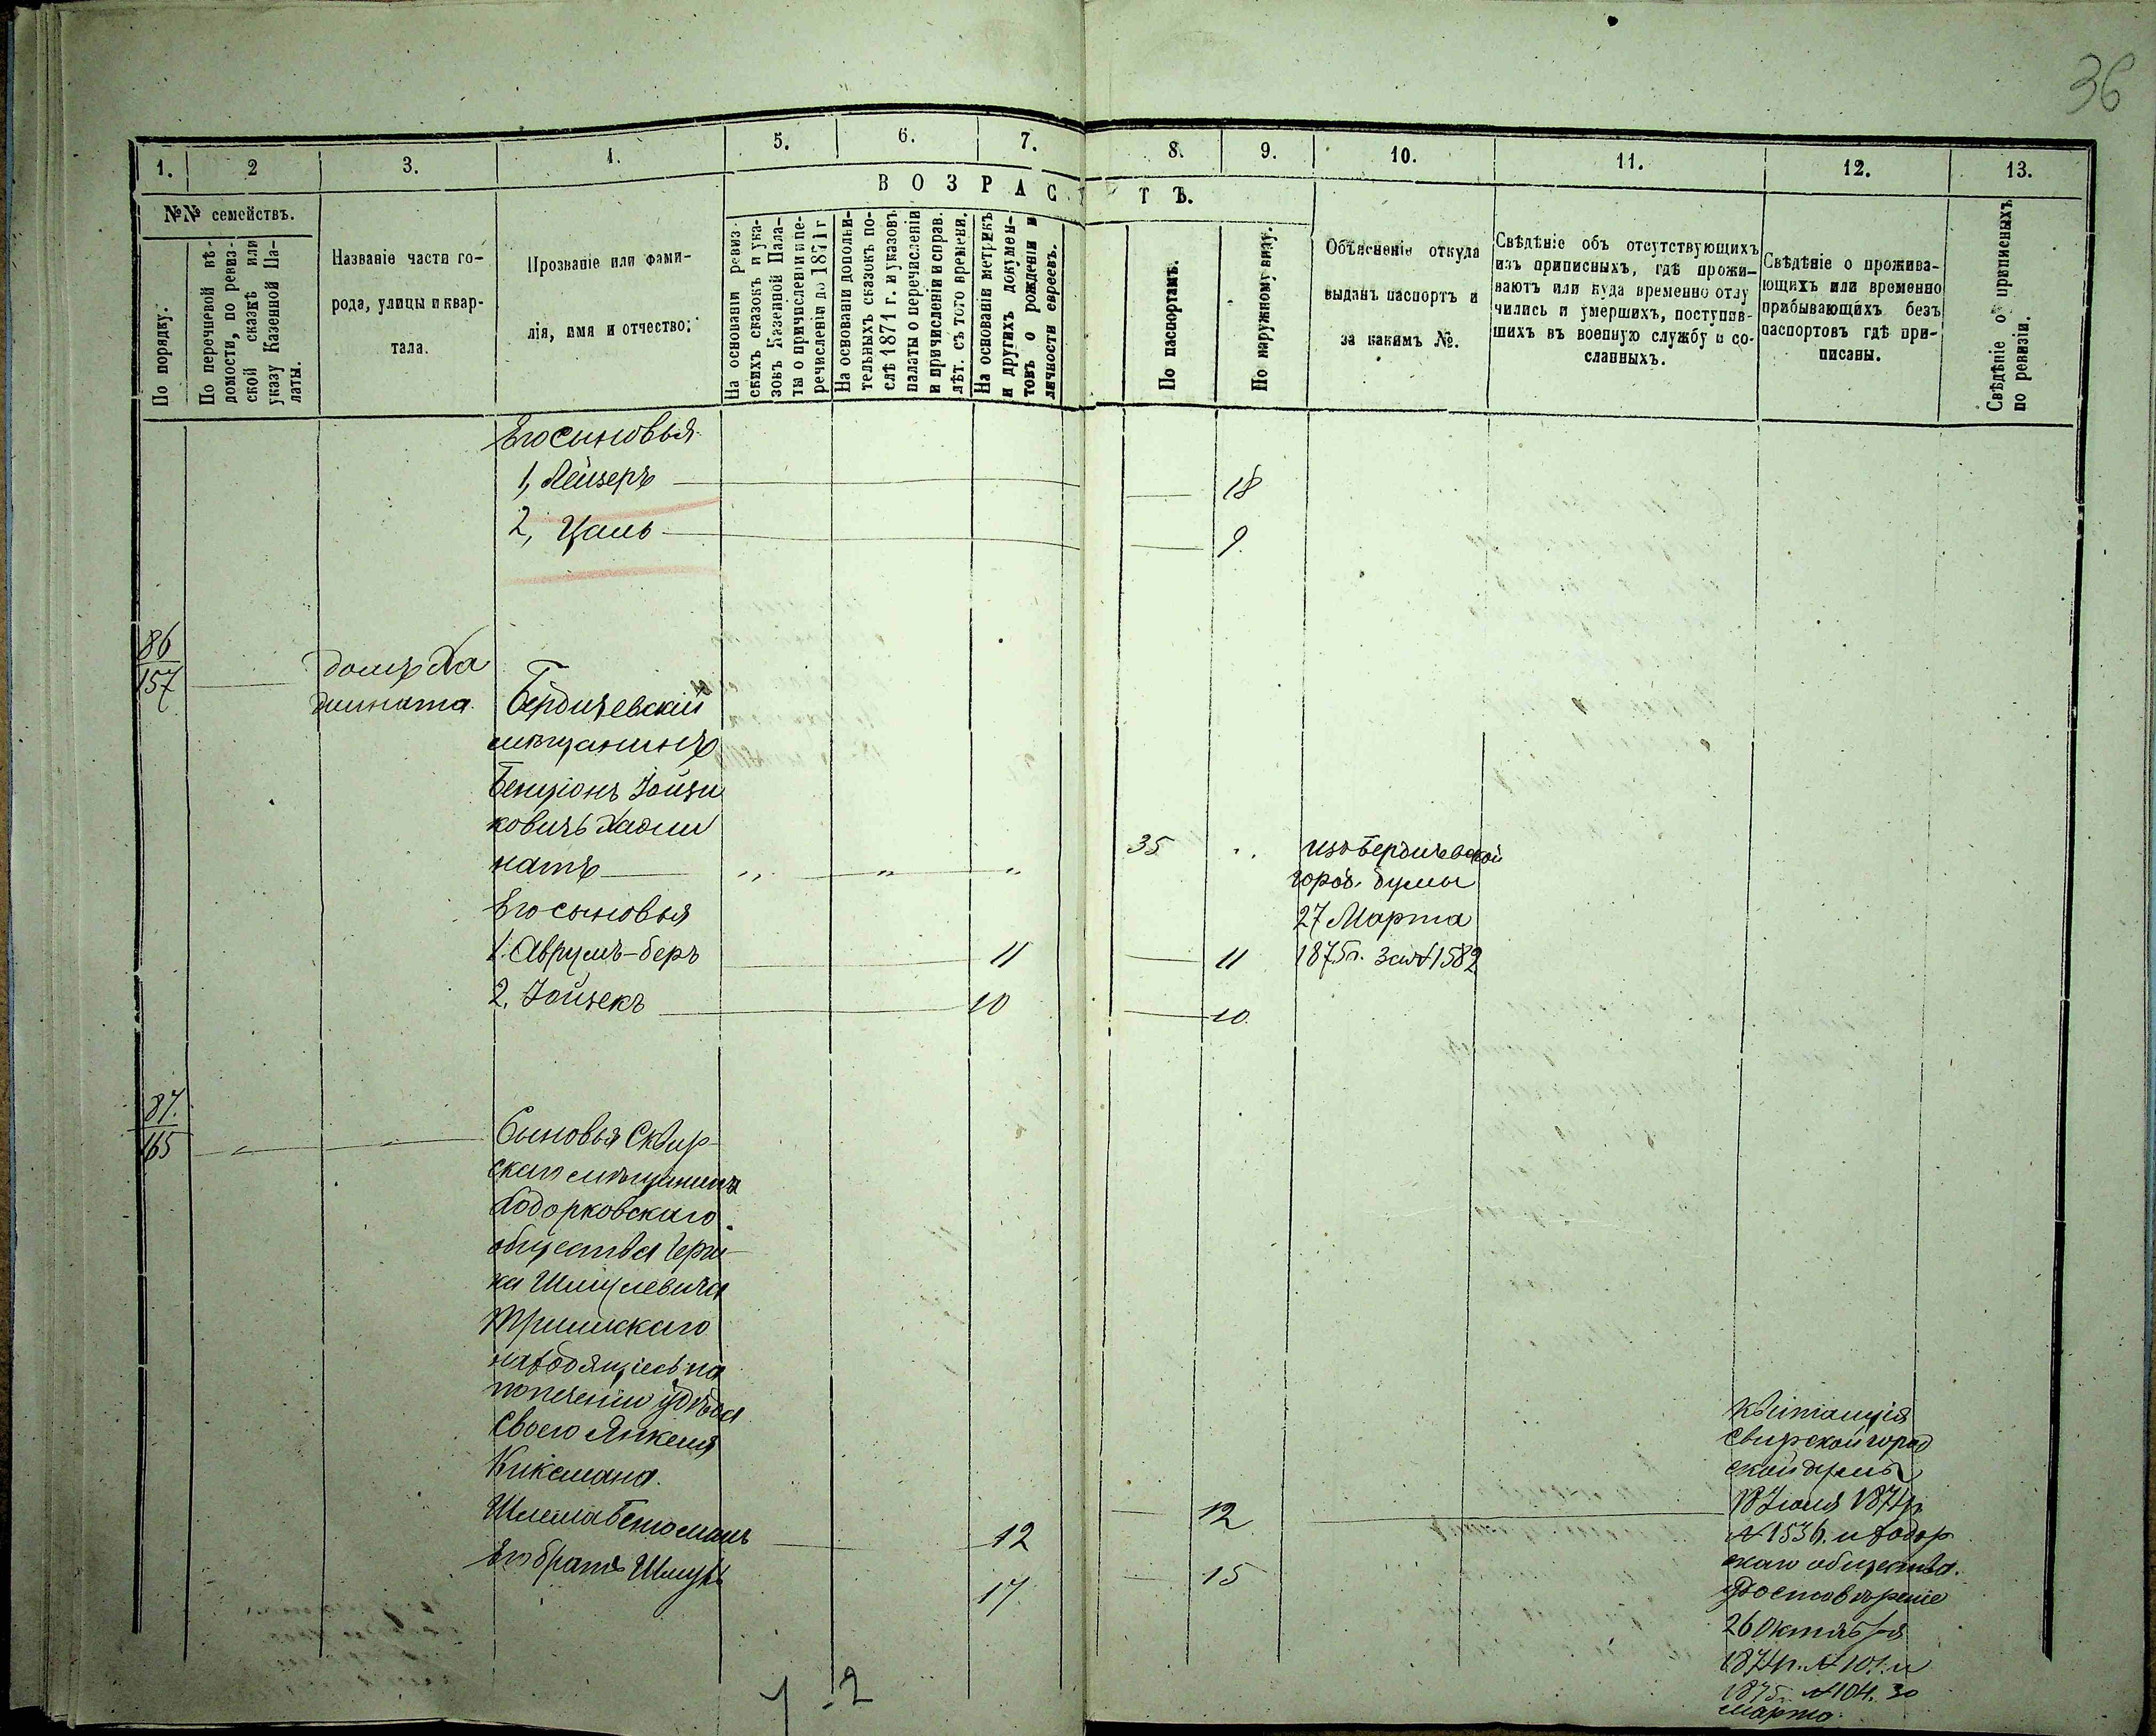 36
1. 2 3. 4. 5. 6. 7. 8. 9. 10. 11. 12. 13.
№№ семействъ.
По порядку.
По перечневой вѣ-
домости, по ревиз-
ской сказкѣ или
указу Казенной Па-
латы.
Названіе части го-
рода, улицы и квар-
тала.
Прозваніе или фами-
лія, имя и отчество.
ВОЗРАСТЪ.
На основаніи ревиз-
скихъ сказокъ и ука-
зовъ Казенной Пала-
ты о причисленіи и пе-
речисленіи до 1871 г
На основаніи дополни-
тельныхъ сказокъ по-
слѣ 1871 г. и указовъ
палаты о перечисленіи
и причисленіи и справ.
лѣт. съ того времени.
На основаніи метрикъ
и другихъ докумен-
товъ о рожденіи и
личности евреевъ.
По паспортамъ.
По наружному виду.
Объясненіе откуда
выданъ паспортъ и
за какимъ №.
Свѣдѣніе объ отсутствующихъ
изъ приписныхъ, гдѣ прожи-
ваютъ или куда временно отлу
чились и умершихъ, поступив-
шихъ въ военную службу и со-
сланныхъ.
Свѣдѣніе о прожива-
ющихъ или временно
прибывающихъ безъ
паспортовъ гдѣ при-
писаны.
Свѣдѣніе о приписныхъ
по ревизіи.
Его сыновья
1, Лейзеръ 18
2, Цаль 9
86
157
домъ Ха
дината
Бердичевскій
мѣщанинъ
Бенціонъ Іойзи
ковичъ Хади
натъ „ „ „ 35 „
Его сыновья
1. Аврумъ-беръ 11 11
2. Іойзекъ 10 10
изъ Бердичевской
город. думы
27 Марта
1875г. за № 1582
87.
165
Сыновья Сквир-
скаго мѣщанина
Ходорковскаго
общества Герш-
ка Шмулевича
находящіеся на
попеченіи
своего Янкеля
Киксмана.
Шлема 12 12
Его братъ Шмуль 17 15
Квитанція
Сквирской город
ской думы
18 Іюля 1874г.
№ 1536. и Ходор
скаго общества.
удостовѣреніе
26 Октября
1874г. № 101. и
1875г. № 104. 30
марта.
1 - 2